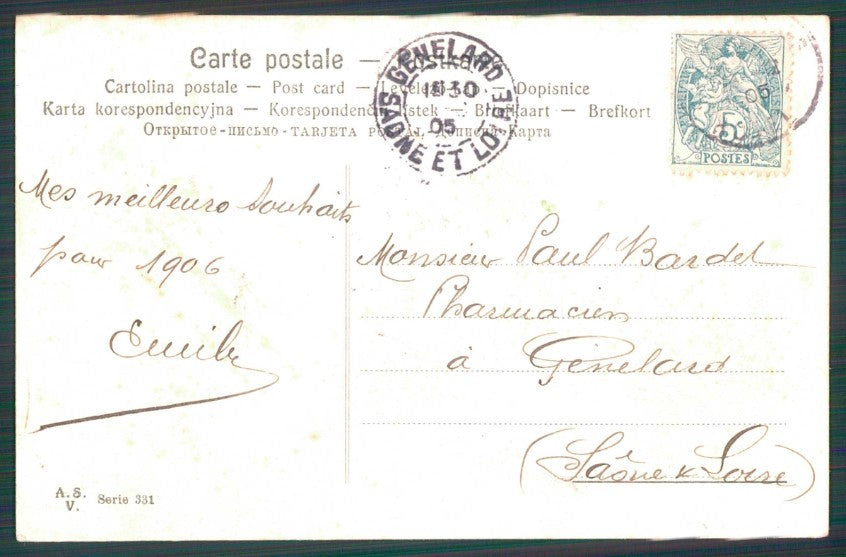 Carte postale — Postkarte
Cartolina postale — Post card — Levelező-Lap — Dopisnice
Karta korespondencyjna — Korespondenční lístek — Brefkaart — Brefkort
Открытое-письмо - TARJETA POSTAL -Дописна-Карта
GÉNELARD
SAONE ET LOIRE
05
05
5
POSTES
Mes meilleurs Souhaits
pour 1906
Emile
Monsieur Paul Bardet
Pharmacien
à Génelard
(Saône & Loire)
A. S.
V. Serie 331